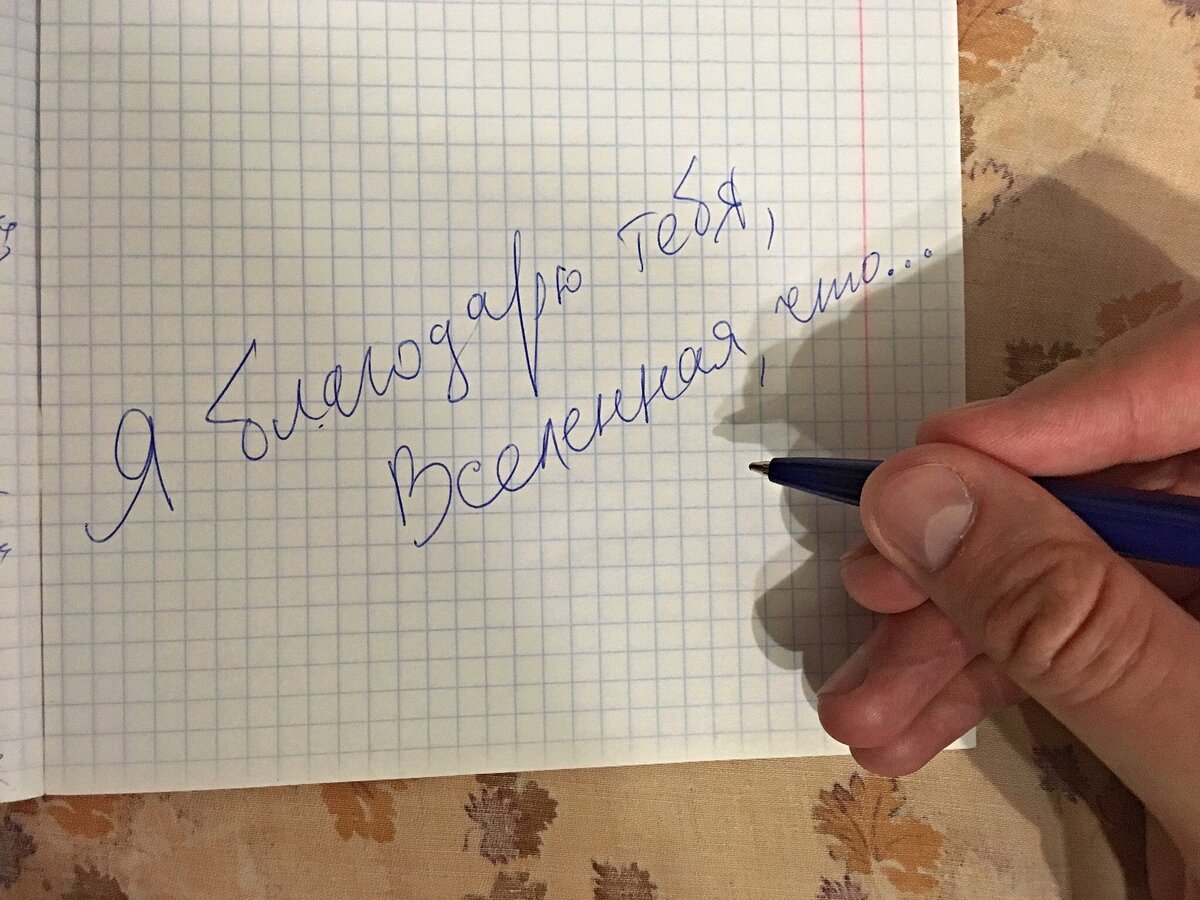 Я благодарю тебя,
Вселенная, что...